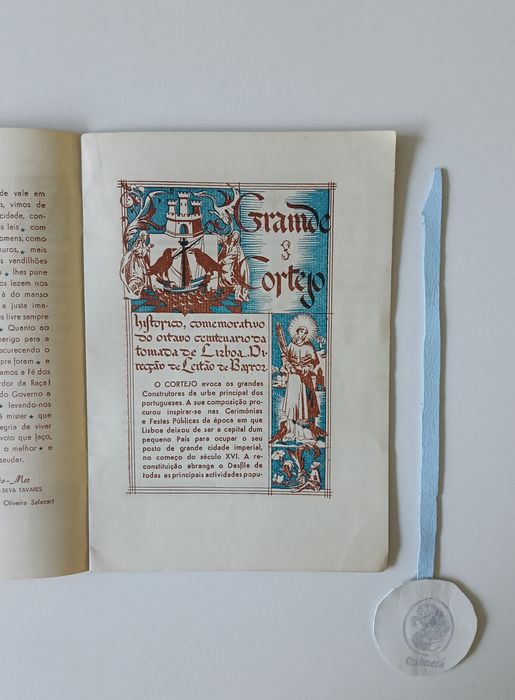 de vale em
s, vimos de
cidade, con-
s leis ★ com
omens, como
uros, ★ mais
vendilhões
★ lhes pune
lezem nos
à do manso
a justa ima-
os livre sempre
★ Quanto ao
perigo para a
scurecendo o
pre foram ★ e
amos a Fé dos
rdor da Raça!
do Governo a
★ levando-nos
á mister ★ que
egria de viver
voto que faço,
o melhor ★ e
saudar.
te-Mor
SILVA TAVARES
Oliveira Salazar)
Grande
Cortejo
histórico, comemorativo
do oitavo centenario da
tomada de Lisboa. Di-
recção de Leitão de Barros
O CORTEJO evoca os grandes
Construtores da urbe principal dos
portugueses. A sua composição pro-
curou inspirar-se nas Cerimónias
e Festas Públicas da época em que
Lisboa deixou de ser a capital dum
pequeno País para ocupar o seu
posto de grande cidade imperial,
no começo do século XVI. A re-
constituição abrange o Desfile de
todas as principais actividades popu-
Quimera